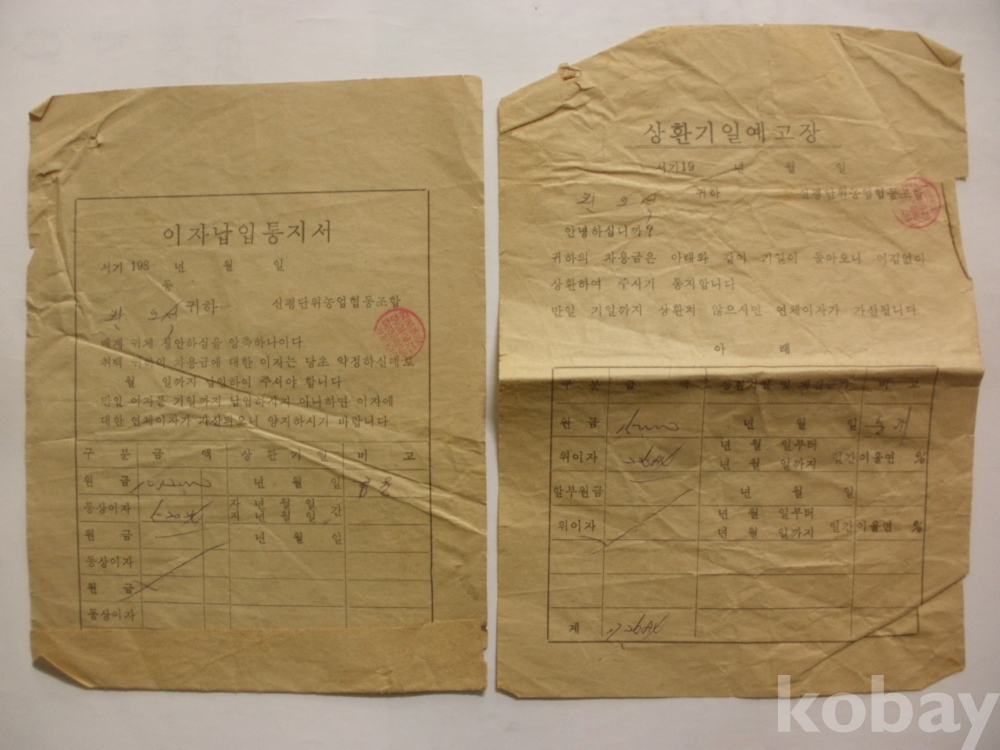 이자납입통지서
서기 198 년 월 일
귀하 신평단위농업협동조합
댁내 위체 집안하심을 앙축하나이다
취택 귀하의 차용금에 대한 이자는 당초 약정하신데로
월 일까지 납입하여 주셔야 합니다
만일 이자를 기일까지 납입하가지 아니하면 이자에
대한 연체이자가 가산되오니 양지하시기 바랍니다
구 분 금 액 상환기일 비 고
원 금 년 월 일
동상이자 자 년 월 일 간
지 년 월 일
원 금 년 월 일
동상이자
원 금
동상이자
상환기일예고장
서기19 년 월 일
귀하 신평단위농업협동조합
안녕하십니까?
귀하의 차용금은 아래와 같이 기일이 돌아오니 어김없이
상환하여 주시기 통지합니다
만일 기일까지 상환치 않으시면 연체이자가 가산됩니다
아 래
구 분 금 비 고
원 금 년 월 일
위이자 년 월 일부터
년 월 일까지 일간이율연
할부원금 년 월 일
위이자 년 월 일부터
년 월 일까지 일간이율연
계
kobay